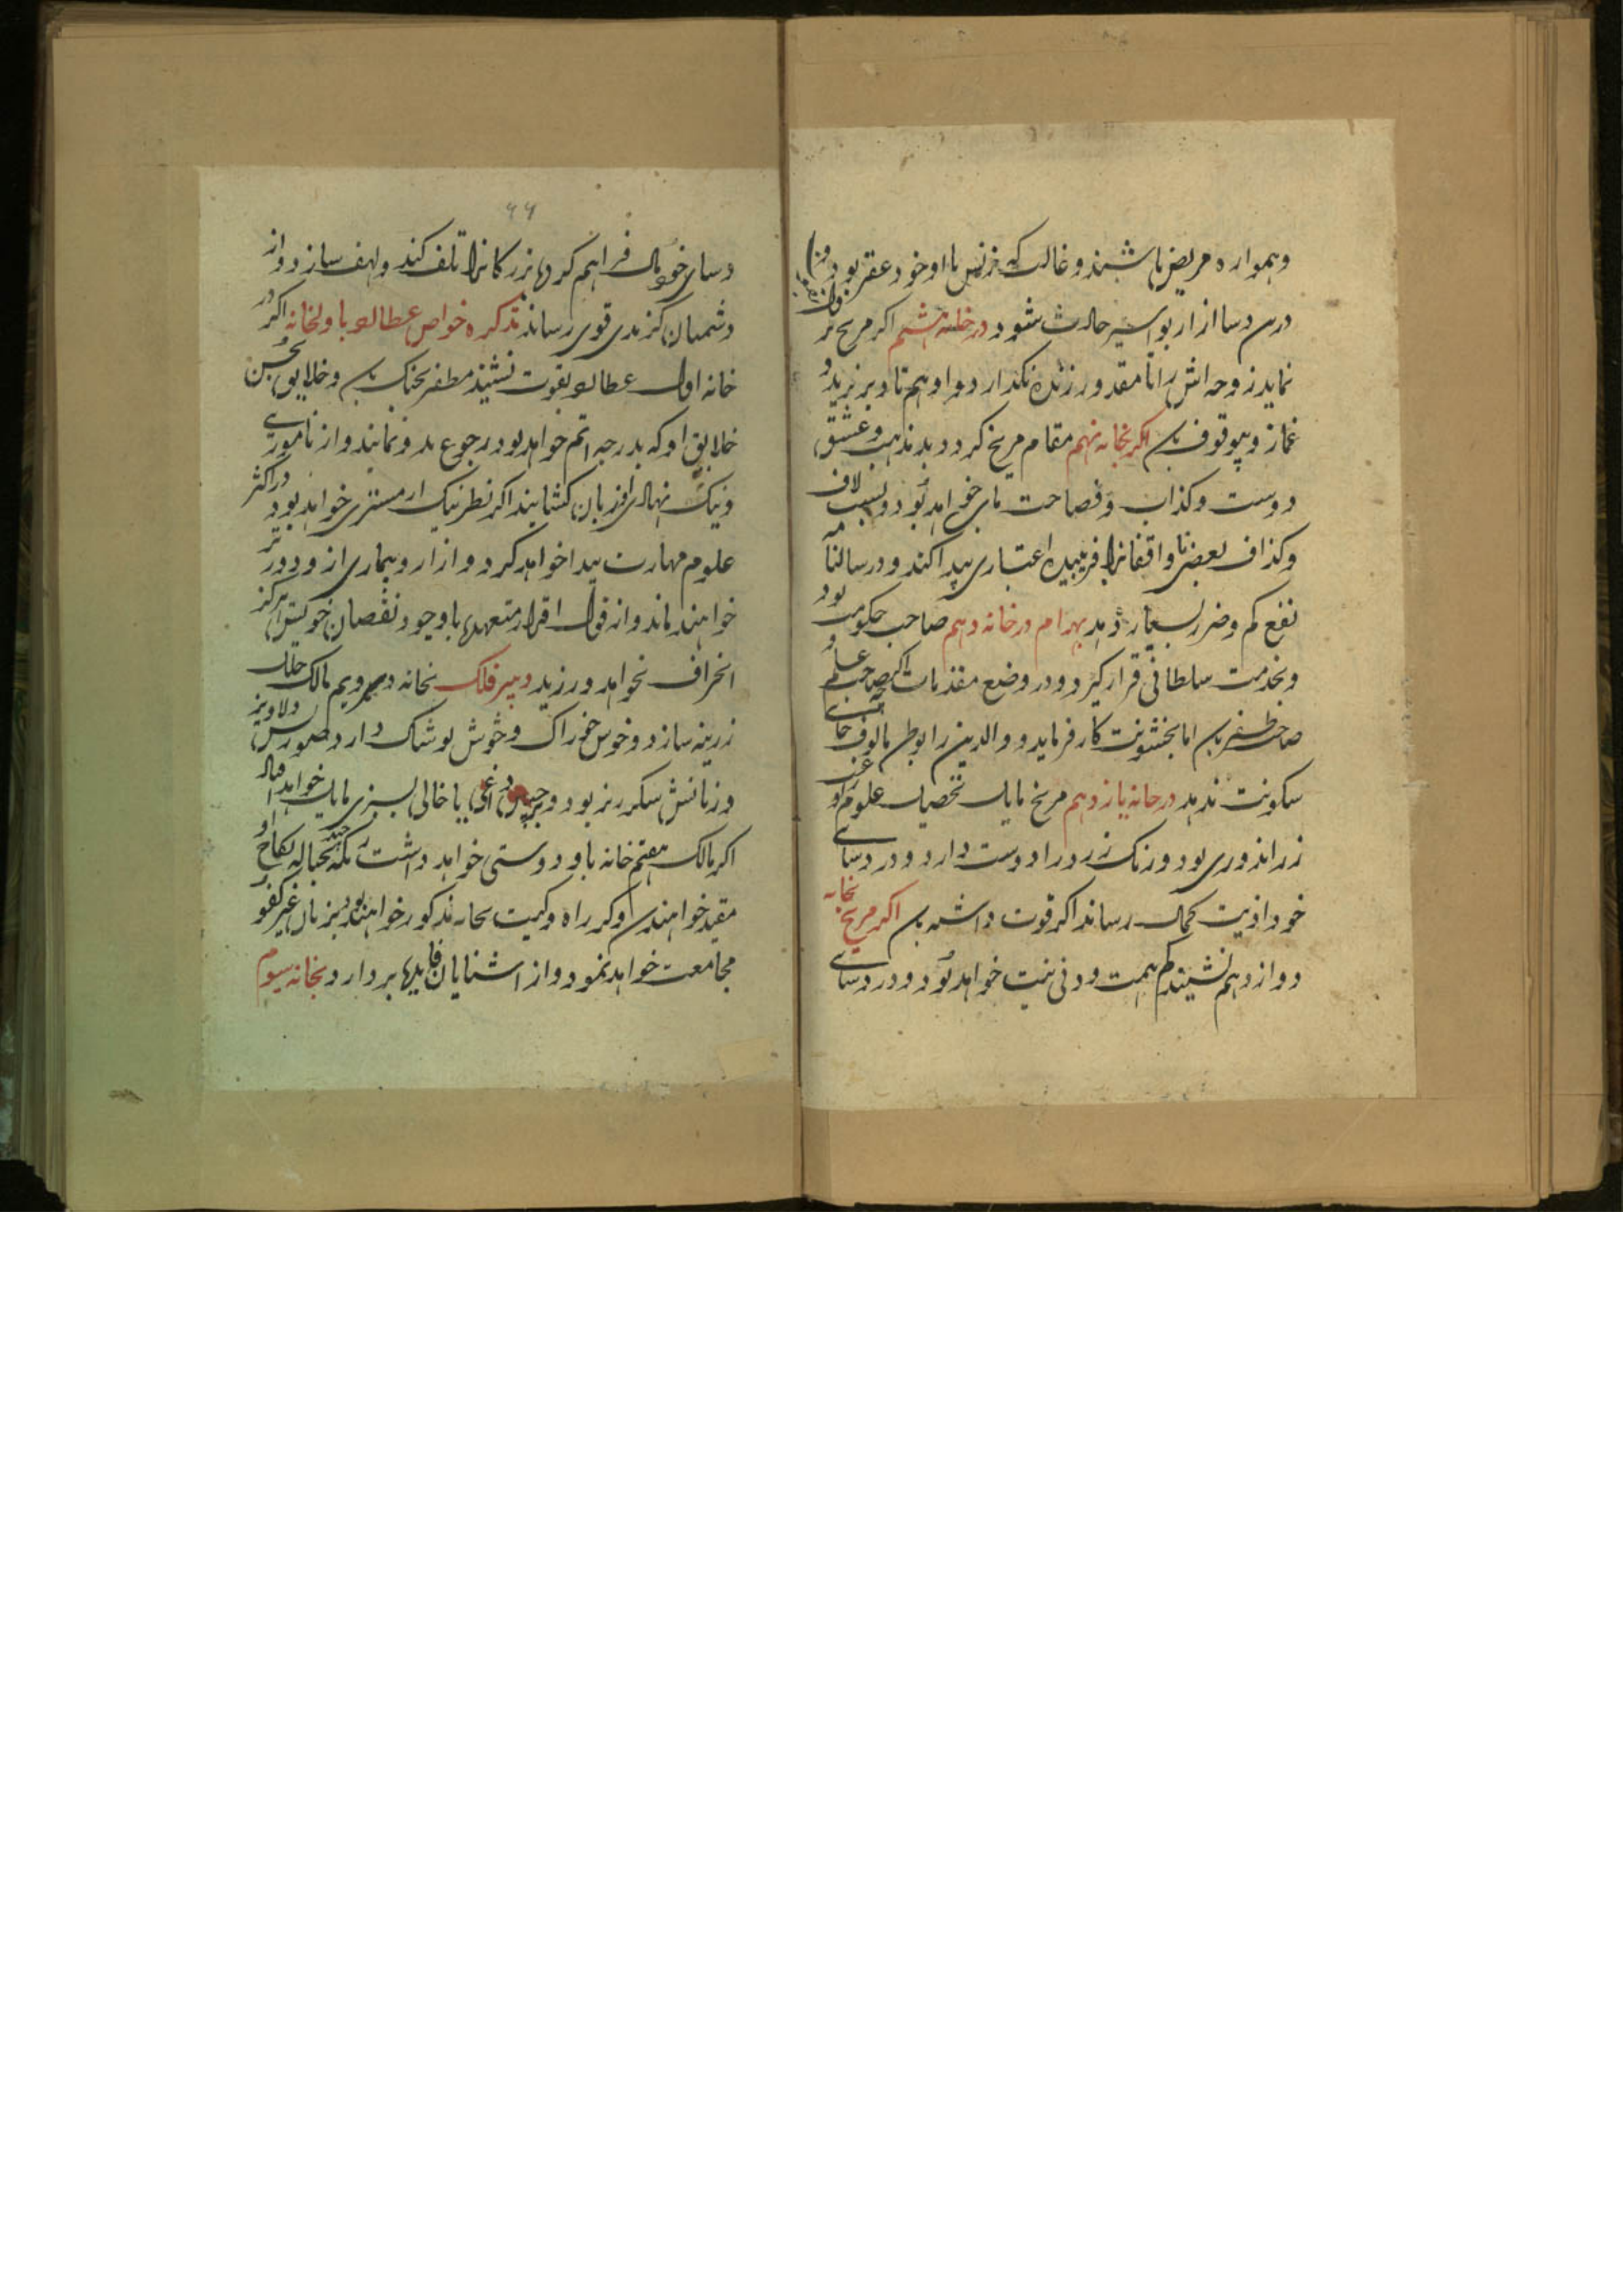 وهمواره مریض باشند و غالب که زنش با او خود عقر بود
درین دسا ازار بواسیر حادث شود و در خانه هشتم اکر مریخ
نماید زوجه اش را تا مقدور زنده نکذارد و او هم تا دیر نزید و
غماز و بیوقوف باشد اکر بخانه نهم مقام مریخ کردد بدمذهب و عشق
دوست و کذاب و فصاحت مای خواهد بود و بسبب لاف
و کذاف بعضی نا واقفانرا فریبیده اعتباری پیدا کند و در سالها
نفع کم و ضرر بسیار دهد بهرام در خانه دهم صاحب حکومت بود
و بخدمت سلطانی قرار کیرد و در وضع مقدمات صاحب علم و
صاحب ظفر باشد اما بخشونت کار فرماید و والدین را بوطن مالوف جای
سکونت ندهد در خانه یازدهم مریخ مایل تحصیل علوم و
زر اندوزی بود و رنک زرد را دوست دارد و در دسای
خود اذیت بکمال رساند اکر قوت داشته باشد اکر مریخ بخانه
دوازدهم نشیند کم همت و دنی نیت خواهد بود و در دسای
۶۶
دسای خود مال فراهم کرده بزرکانرا تلف کند و لهف سازد و از
دشمنان کزندی قوی رساند تذکره خواص عطارد باولخانه اکر در
خانه اول عطارد بقوت نشیند مظفر بجنک باشد و خلایق بحسن
خلایق او که بدرجه اتم خواهد بود رجوع بدو نمایند و از ناموری
و نیک نهادی او زبان کشایند اکر نظر نیک از مشتری خواهد بود در اکثر
علوم مهارت پیدا خواهد کرد و ازار و بیماری از و دور تر
خواهند ماند و از قول اقرار متعهدها باوجود نقصان خویش هرکز
انحراف نخواهد ورزید دبیر فلک بخانه دویم مالک
زرینه سازد و خوش خوراک و خوش پوشاک دارد صورتش دلاویز
و زبانش شکر ریز بود و بر جبین داغی یا خالی بسبزی مایل خواهد
اکر مالک هفتم خانه با و دوستی خواهد داشت بحباله نکاح او
مقید خواهند شد اکر راه و کیت بخانه مذکور خواهند بود بزنان غیر کفو
مجامعت خواهد نمود و از اشنایان فایدها بردارد بخانه سیوم